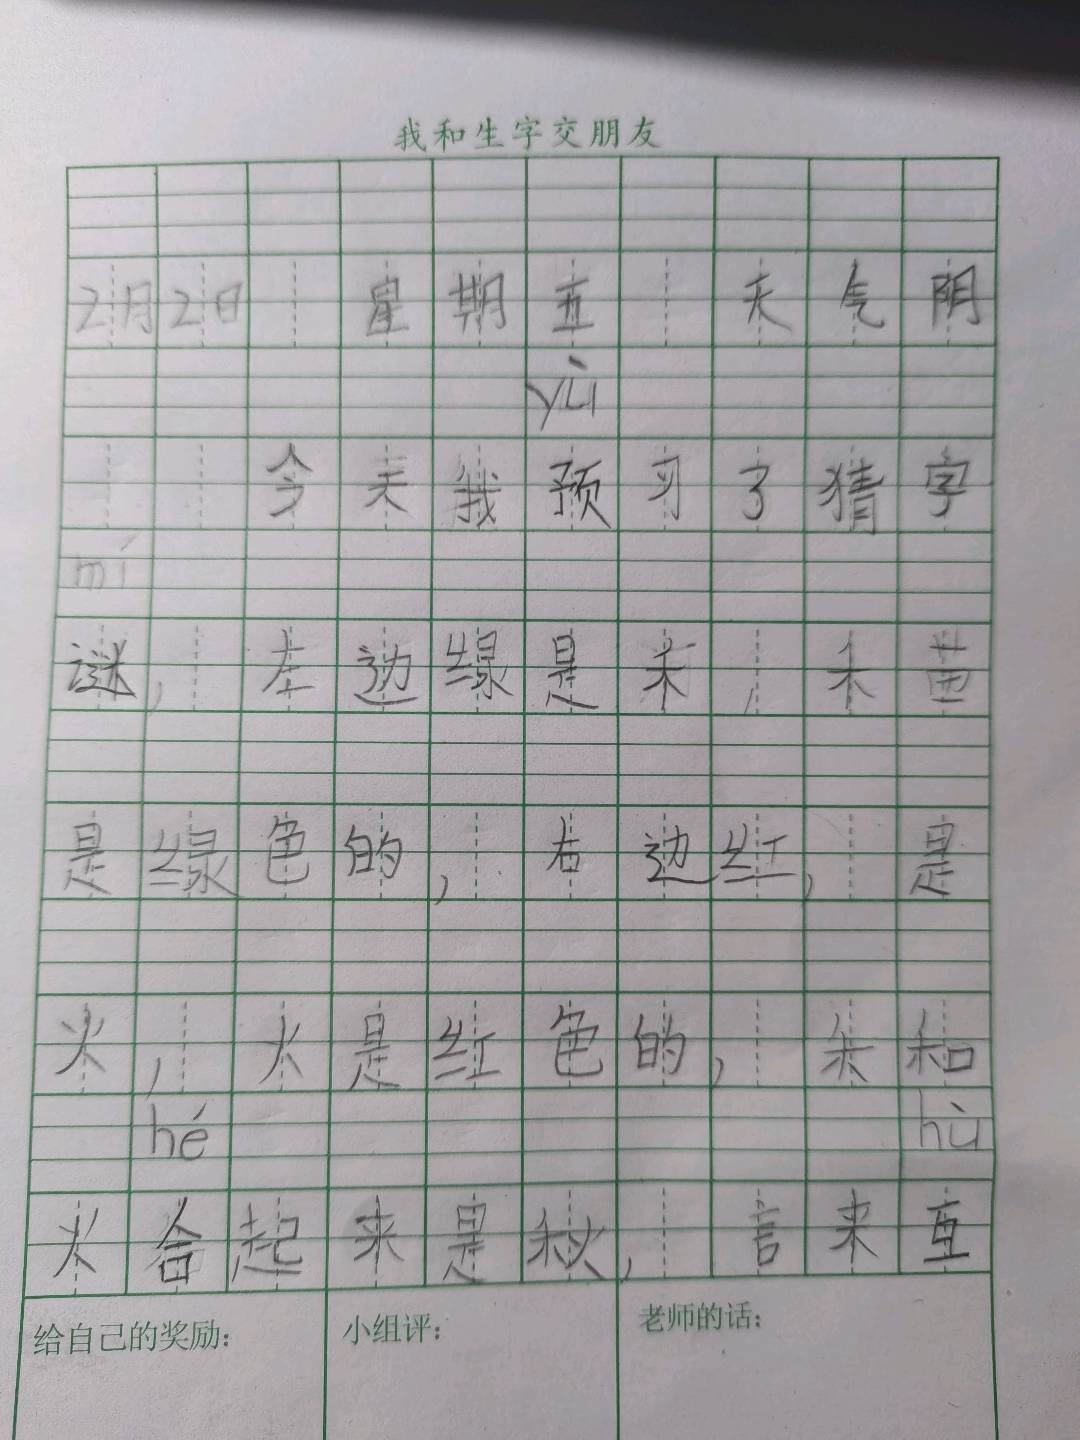 我和生字交朋友
2月2日 星期五 天气阴
yù
今天我预习了猜字
mí
谜,左边绿是禾,禾苗
是绿色的,右边红,是
火,火是红色的,禾和
hé hù
火合起来是秋,言来互
给自己的奖励: 小组评: 老师的话: